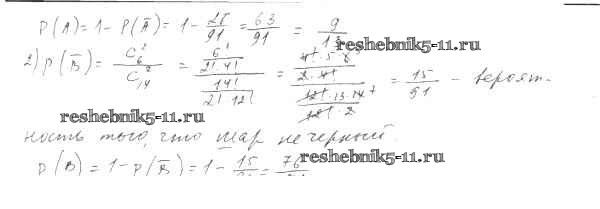 P(A) = 1 - P(Ā) = 1 - 28/91 = 63/91 = 9/13
reshebnik5-11.ru
2) P(B̄) = C₆²/C₁₄² = (6!/(2!·4!))/(14!/(2!·12!)) = (4!·5·6/(2·4!))/(12!·13·14/(12!·2)) = 15/91 - вероят-
reshebnik5-11.ru
ность того, что шар не черный.
reshebnik5-11.ru
P(B) = 1 - P(B̄) = 1 - 15/91 = 76/91